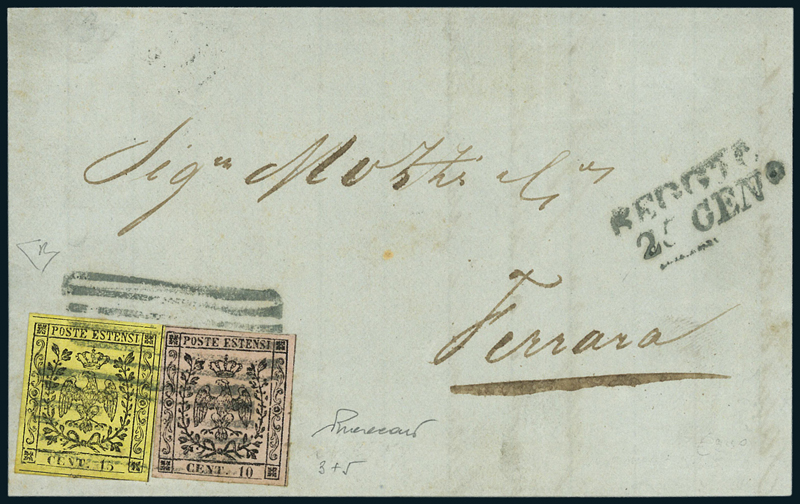 Sig.ri Mozzi e C.i
REGGIO
25 GEN.O
Ferrara
POSTE ESTENSI
CENT. 15
POSTE ESTENSI
CENT. 10
3+5